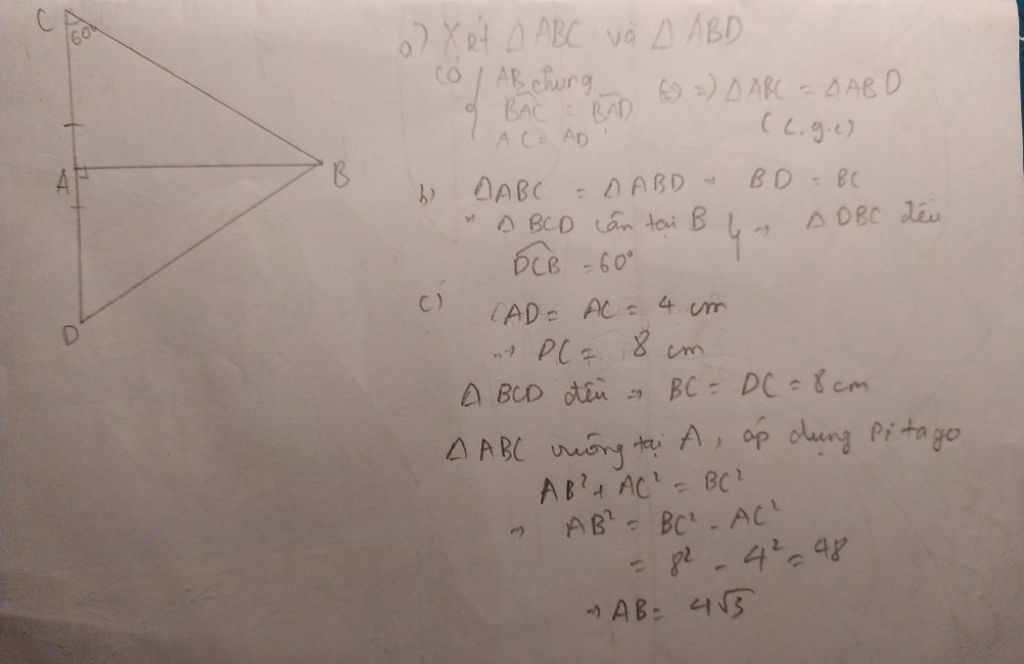 C
60°
A
B
D
a) Xét △ABC và △ABD
có { AB chung
BAC = BAD => △ABC = △ABD
AC = AD (c.g.c)
b) △ABC = △ABD => BD = BC
=> △BCD cân tại B } => △DBC đều
DCB = 60°
c) AD = AC = 4 cm
=> DC = 8 cm
△BCD đều => BC = DC = 8cm
△ABC vuông tại A, áp dụng Pitago
AB² + AC² = BC²
=> AB² = BC² - AC²
= 8² - 4² = 48
=> AB = 4√3